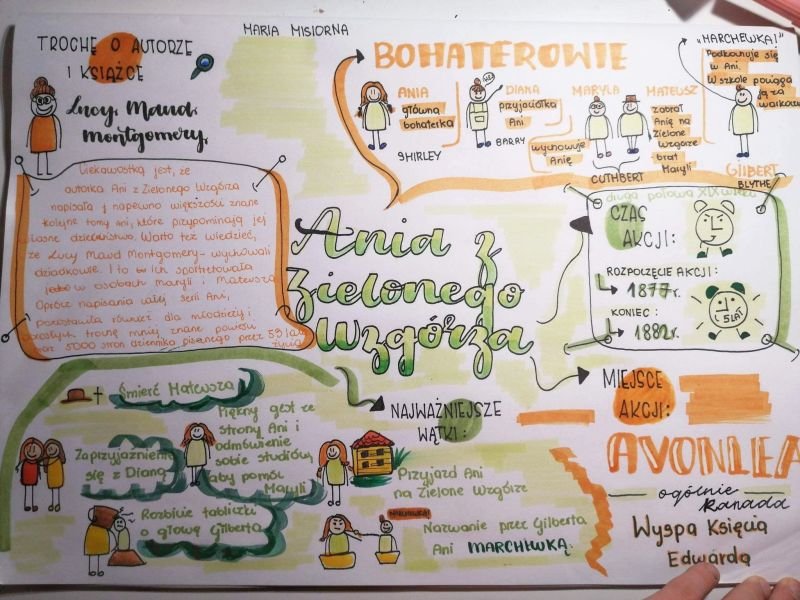 MARIA MISIORNA
TROCHĘ O AUTORZE
I KSIĄŻCE
Lucy. Maud.
Montgomery.
Ciekawostką jest, że
autorka Ani z Zielonego Wzgórza
napisała y napewno większości znane
kolejne tomy Ani, które przypominają jej
własne dzieciństwo. Warto też wiedzieć,
że Lucy Mawd Montgomery- wychowali
dziadkowie. I to ich sportretowała
jako w osobach Maryli i Mateusza
Oprócz napisania całej serii Ani,
pozostawiła również dla młodzieży i
dorosłych trochę mniej znane powieści
oraz 5000 stron dziennika pisanego przez 53 lata
życia
BOHATEROWIE
ANIA
główna
bohaterka
SHIRLEY
DIANA
przyjaciółka
Ani
BARRY
MARYLA
wychowuje
Anię
MATEUSZ
zabrał
Anię na
Zielone
Wzgórze
brat
Maryli
CUTHBERT
„MARCHEWKA!"
Podkochuje się
w Ani.
W szkole pociąga
ją za
warkocz
GILBERT
BLYTHE
Ania z
Zielonego
Wzgórza
druga połowa XIX wieku
CZAS
AKCJI:
ROZPOCZĘCIE AKCJI:
1877r.
KONIEC:
1882r.
5 LAT
MIEJSCE
AKCJI:
AVONLEA
ogólnie
Kanada
Wyspa Księcia
Edwarda
NAJWAŻNIEJSZE
WĄTKI:
Śmierć Mateusza
Piękny gest ze
strony Ani i
odmówienie
sobie studiów,
aby pomóc
Maryli
Zaprzyjaźnienie
się z Dianą
Przyjazd Ani
na Zielone Wzgórze
Rozbicie tabliczki
o głowę Gilberta
MARCHEWKA!
Nazwanie przez Gilberta
Ani MARCHEWKĄ.